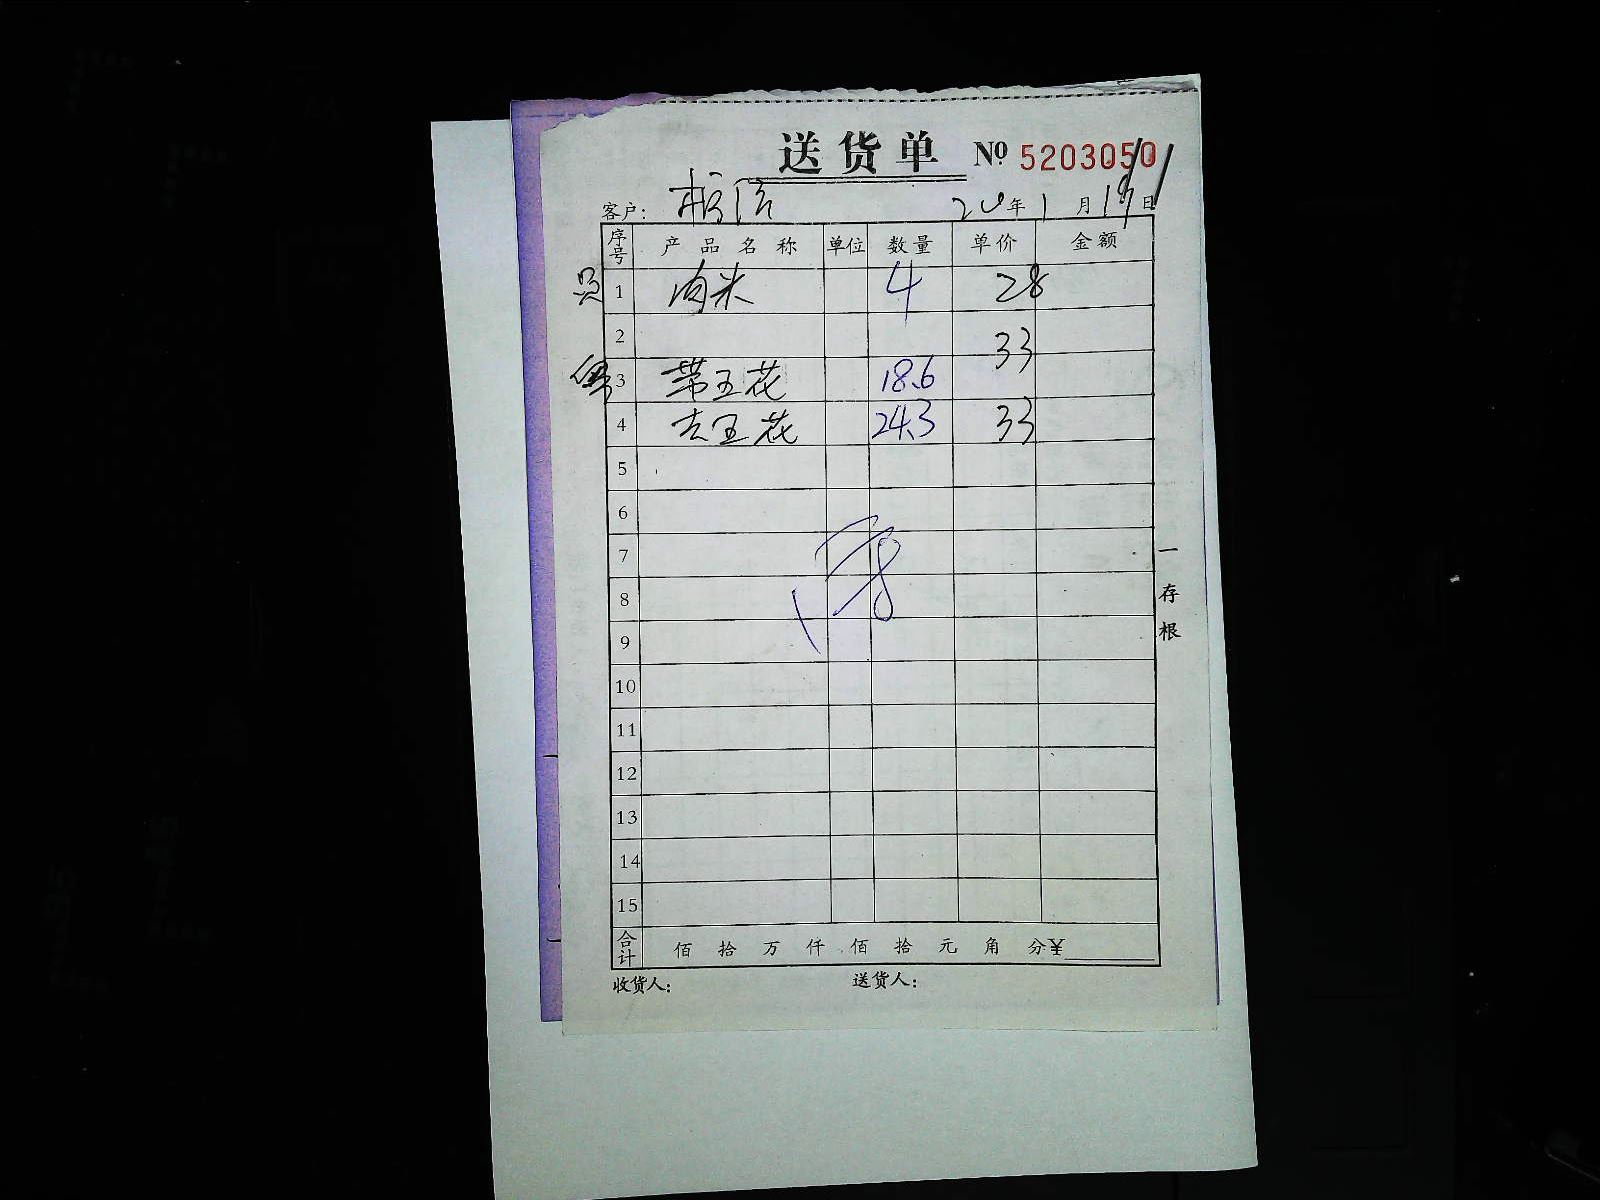 送货单 № 5203050
客户： 柏信 20年1月19日
序号 产品名称 单位 数量 单价 金额
1 肉米 4 28
2 33
3 带五花 18.6
4 去五花 24.3 33
5
6
7
8
9
10
11
12
13
14
15
一存根
合计 佰 拾 万 仟 佰 拾 元 角 分¥
收货人： 送货人：